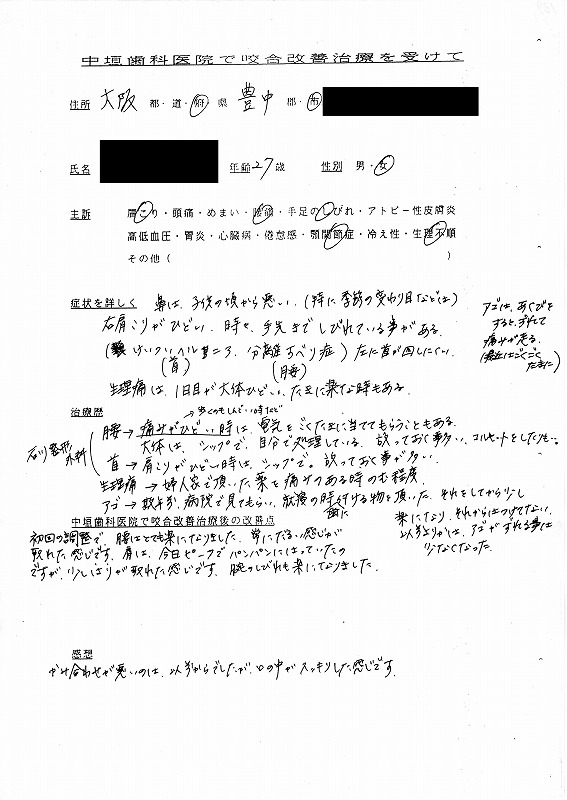 中垣歯科医院で咬合改善治療を受けて
住所 大阪 都・道・府・県 豊中 郡・市
氏名 年齢 27歳 性別 男・女
主訴 肩こり・頭痛・めまい・腰痛・手足のしびれ・アトピー性皮膚炎
高低血圧・胃炎・心臓病・倦怠感・顎関節症・冷え性・生理不順
その他( )
症状を詳しく 鼻は、子供の頃から悪い。(特に季節の変わり目などは)
右肩こりがひどい、時々、手先までしびれている事がある。
(けいついヘルニア、分離すべり症)左に首が回しにくい。
(首) (腰)
生理痛は、1日目が大体ひどい。たまに楽な時もある。
アゴは、あくびを
すると、ずれて
痛みが走る。
(最近はごくごく
たまに)
治療歴 →歩くのもしんどい時など
石川整形
外科
腰→痛みがひどい時は、電気をごくたまに当ててもらうこともある。
大体は、シップで、自分で処理している。放っておく事多い、コルセットをしたりも。
首→肩こりがひどい時は、シップで。放っておく事が多い。
生理痛→婦人家で頂いた薬を痛みつある時のむ程度。
アゴ→数年前、病院で見てもらい、就寝の時歯に付ける物を頂いた。それをしてから少し
楽になり、それからはつけてない。
以前よりかは、アゴがずれる事は
少なくなった。
中垣歯科医院で咬合改善治療後の改善点
初回の調整で、腰はとても楽になりました。常にだるい感じが
取れた感じです。肩は、今日ピークでパンパンにはっていたの
ですが、少しはりが取れた感じです。腕のしびれも楽になりました。
感想
かみ合わせが悪いのは、以前からでしたが、口の中がスッキリした感じです。